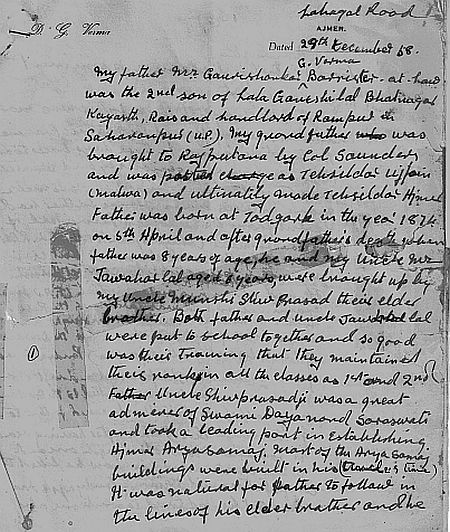 Lahagal Road
D. G. Verma
AJMER.
Dated 29th December 58.
G. Verma
My father Mr Gaurishankar Barrister-at-Law
was the 2nd son of Lala Ganeshilal Bhatnagar
Kayasth, Rais and handlord of Rampur
Saharanpur (U.P.), My grand father who was
brought to Rajputana by Col Saunders
and was posted as Tehsildar Ujjain
(malwa) and ultimately made Tehsildar Ajmer
Father was born at Todgarh in the year 1874
on 5th April and after grandfather's death when
father was 8 years of age, he and my Uncle Mr
Jawahar lal aged years, were brought up by
my Uncle Munshi Shiv Prasad their elder
brother. Both father and uncle Jawahar lal
were put to school together and so good
was their training that they maintained
their rank in all the classes as 1st and 2nd
Father Uncle Shivprasadji was a great
admirer of Swami Dayanand Saraswati
and took a leading part in Establishing
Ajmer Arya Samaj. Most of the Arya Samaj
buildings were built in his time)
It was natural for father to follow in
the lines of his elder brother and he
①